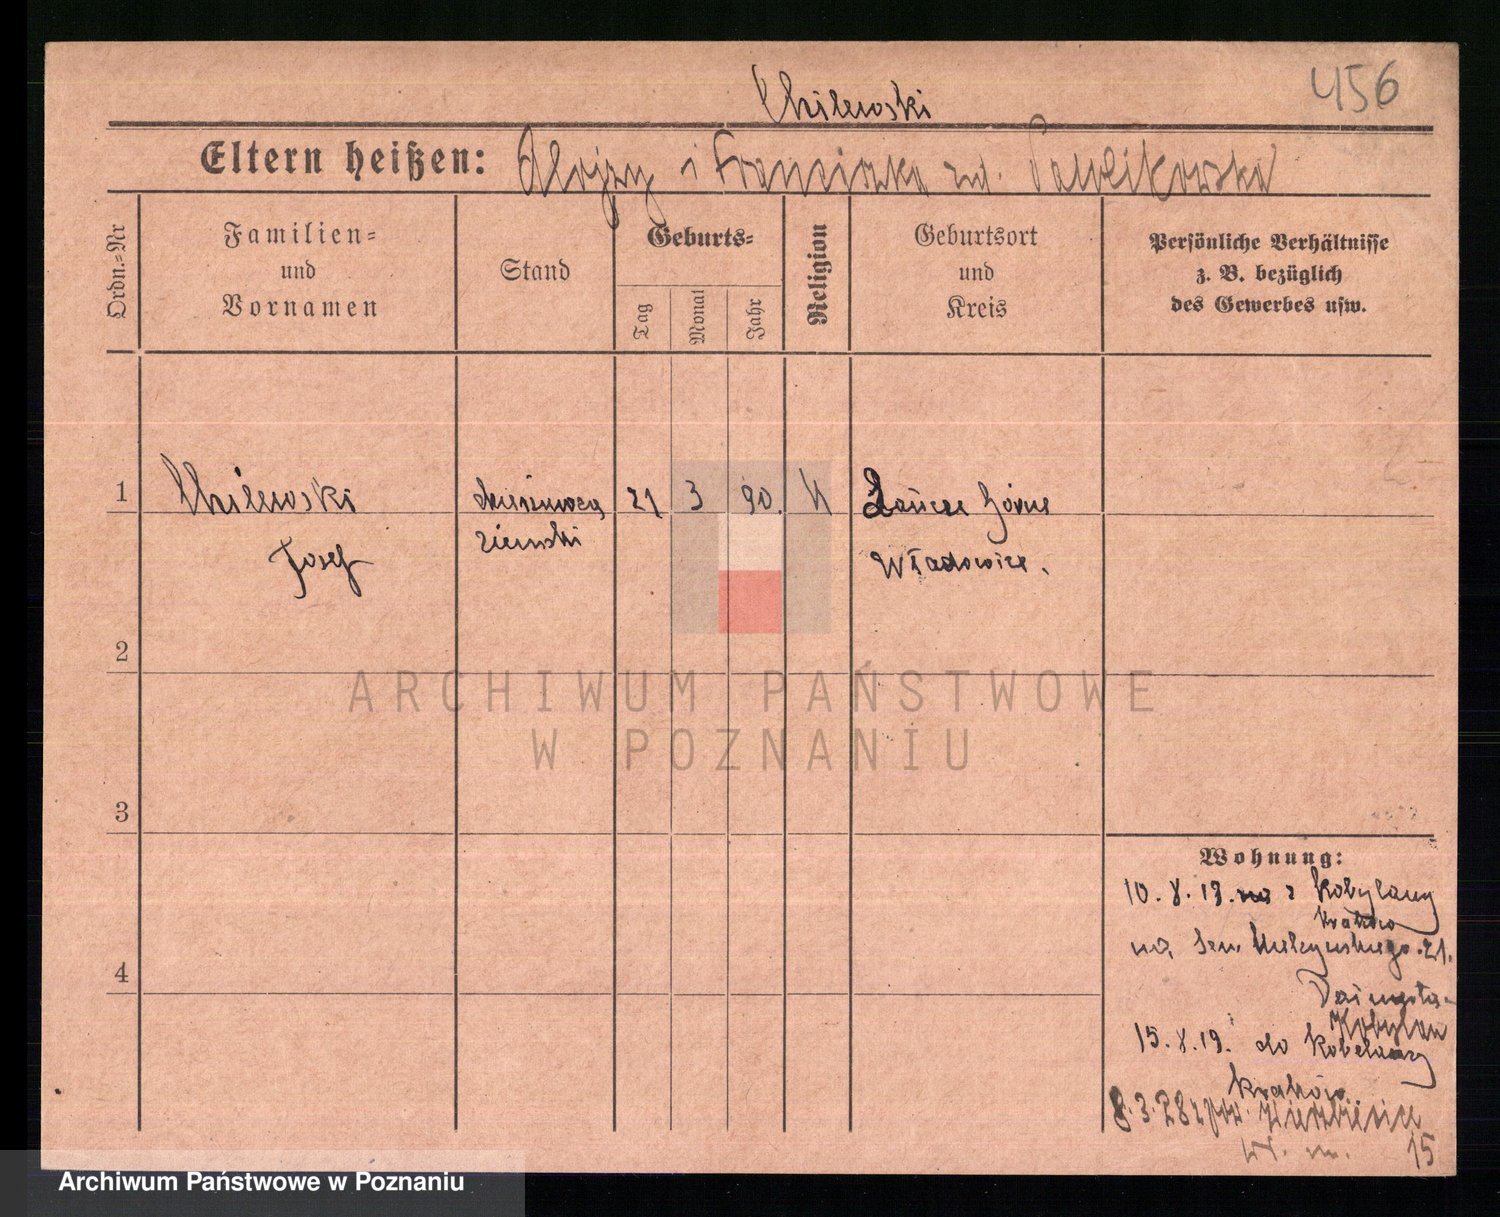 456
Chilewski
Eltern heißen: Alojzy i Franciszka zd. Pawlikowska
Ordn.-Nr
Familien-
und
Vornamen
Stand
Geburts-
Tag
Monat
Jahr
Religion
Geburtsort
und
Kreis
Persönliche Verhältnisse
z. B. bezüglich
des Gewerbes usw.
1
Chilewski
Josef
ziemski
21
3
90.
Górne
2
3
4
Wohnung:
10.8.19. z Kobylany
Kraków
na Sew. Mielżyńskiego 21.
15.8.19. do
Kraków
8.3.28
15
ARCHIWUM PAŃSTWOWE
W POZNANIU
Archiwum Państwowe w Poznaniu